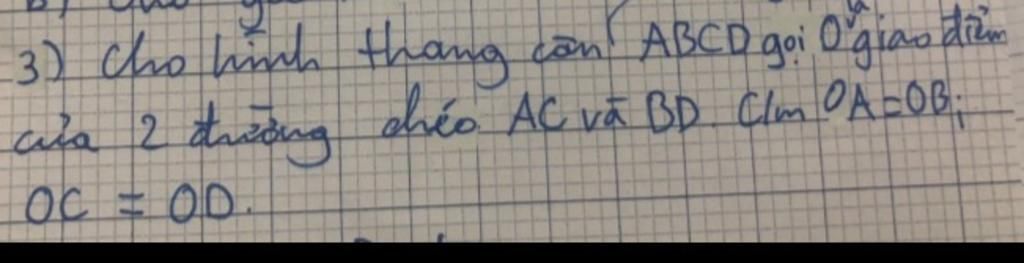 3) Cho hình thang cân ABCD gọi O là giao điểm
của 2 đường chéo AC và BD. C/m OA = OB;
OC = OD.